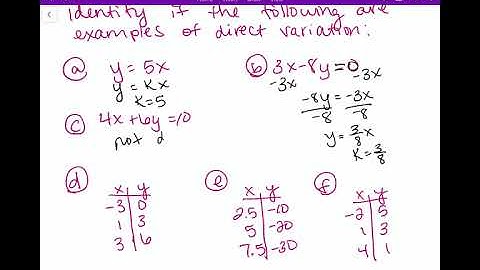 identify if the following are
examples of direct variation:
ⓐ y = 5x
y = kx
k = 5
ⓑ 3x - 8y = 0
-3x -3x
-8y = -3x
-8 -8
y = 3/8 x
k = 3/8
ⓒ 4x + 6y = 10
not d
ⓓ
x y
-3 0
1 3
3 6
ⓔ
x y
2.5 -10
5 -20
7.5 -30
ⓕ
x y
-2 5
1 3
4 1